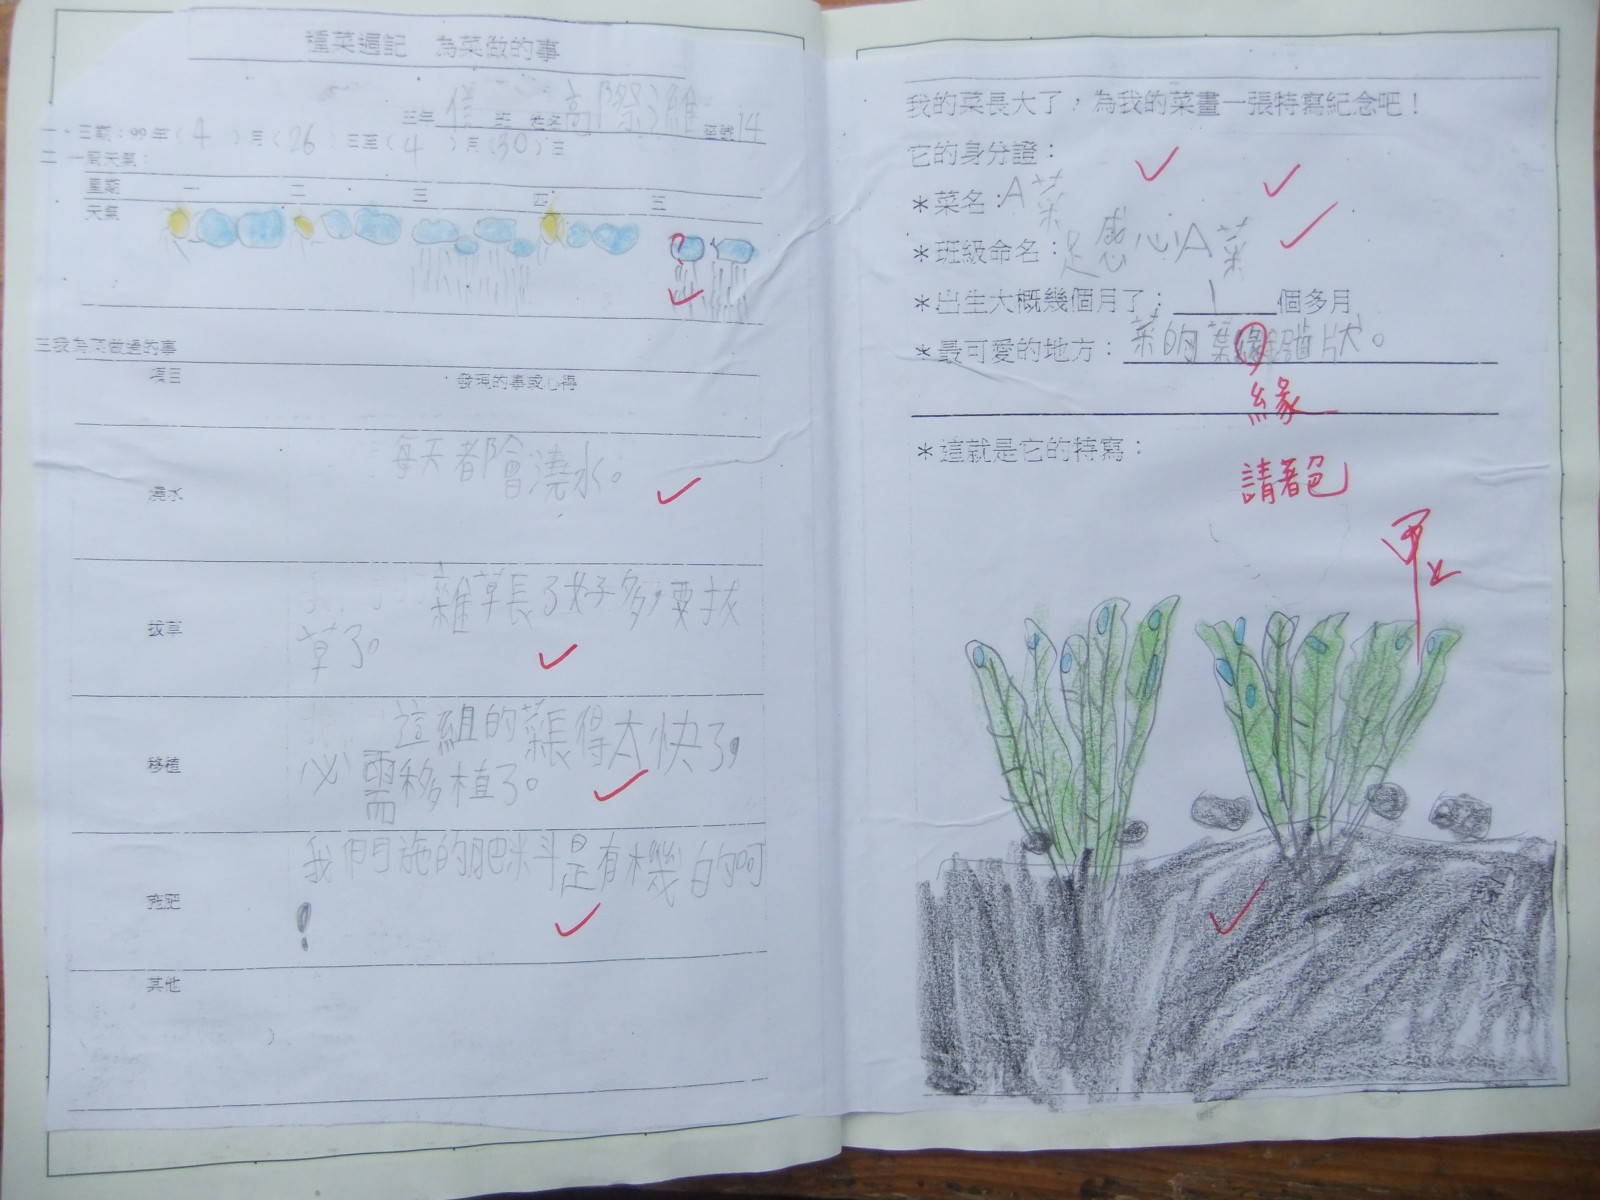 種菜週記 為菜做的事
三年 信 班 姓名 高際維 座號 14
一、日期：99年（4）月（26）日至（4）月（30）日
二 一周天氣：
星期 一 二 三 四 五
天氣
三我為菜做過的事
項目 發現的事或心得
澆水
每天都會澆水。
拔草
雜草長了好多，要拔
草了。
移植
這組的菜長得太快了，
必需移植了。
施肥
我們施的肥料是有機的呵
！
其他
我的菜長大了，為我的菜畫一張特寫紀念吧！
它的身分證：
＊菜名：A菜
＊班級命名：足感心A菜
＊出生大概幾個月了： 1 個多月
＊最可愛的地方：菜的葉緣鋸齒狀。
緣
＊這就是它的特寫：
請著色